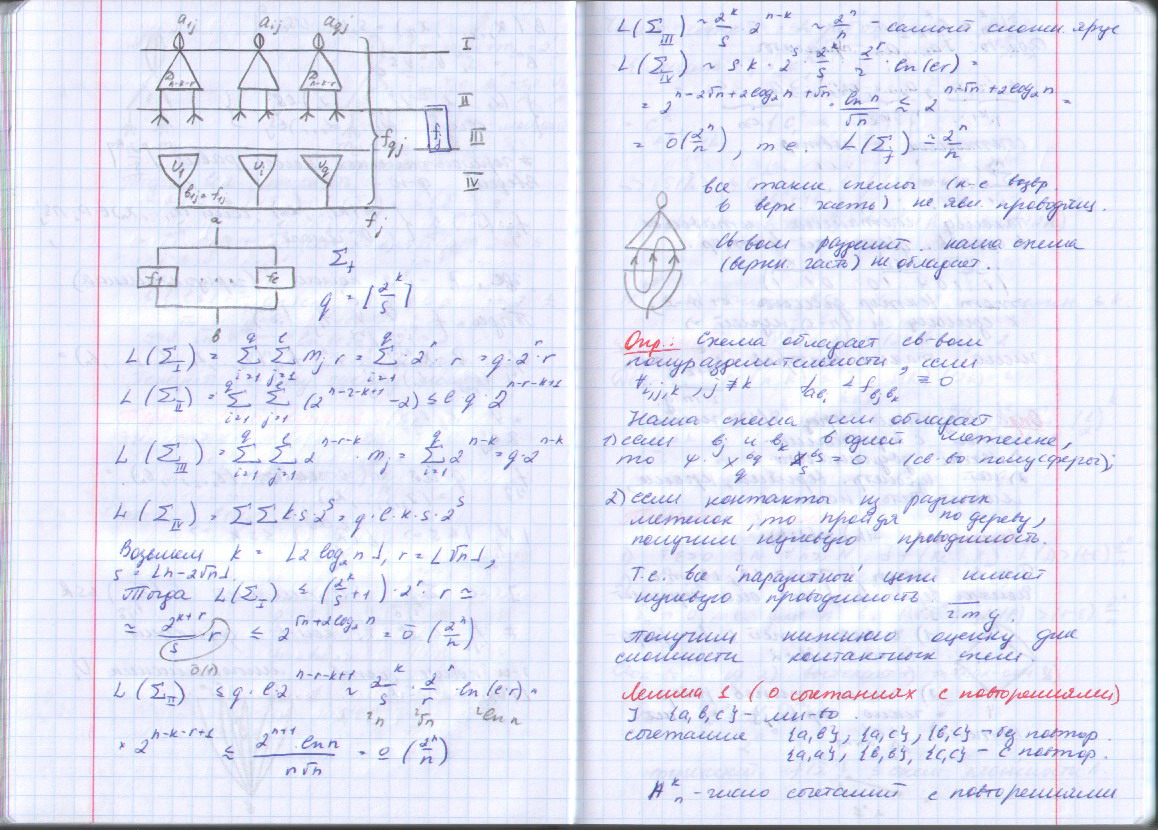 a₁ⱼ aᵢⱼ a_qj
I
D_{n-k-r} D_{n-k-r}
II
f_qj
III
V₁ Vᵢ V_q
IV
в₁ⱼ = f₁ⱼ
fⱼ
a
f₁ f_e Σ_f
q = ⌈2^k/s⌉
в
L(Σ_I) = Σ_{i=1}^q Σ_{j=1}^e mⱼ r = Σ_{i=1}^q 2^r · r = q·2^r·r
L(Σ_II) = Σ_{i=1}^q Σ_{j=1}^e (2^{n-r-k+1} - 2) ≤ e q · 2^{n-r-k+1}
L(Σ_III) = Σ_{i=1}^q Σ_{j=1}^e 2^{n-r-k} · mⱼ = Σ_{i=1}^q 2^{n-k} = q·2^{n-k}
L(Σ_IV) = ΣΣ k·s·2^s = q·e·k·s·2^s
Возьмем k = ⌊2 log₂ n⌋, r = ⌊√n⌋,
s = ⌊n-2√n⌋.
Тогда L(Σ_I) ≤ (2^k/s + 1)·2^r · r ≃
≃ 2^{k+r}/s r ≤ 2^{√n+2log₂n} = ō(2^n/n)
ō(1)
L(Σ_II) ≤ q·e·2^{n-r-k+1} ~ 2^k/s · 2^r/r · ln(e·r) ·
· 2^{n-k-r+1} ≤ 2^{n+1}·ln n / n√n = ō(2^n/n)
L(Σ_III) ~ 2^k/s · 2^{n-k} ~ 2^n/n - самый сложн. ярус
L(Σ_IV) ~ s k · 2^s · 2^k/s · 2^r/r · ln(er) =
= 2^{n-2√n+2log₂n+√n} · ln n/√n ≤ 2^{n-√n+2log₂n} =
= ō(2^n/n), т.е. L(Σ_f) ≃ 2^n/n
все такие схемы (к-е возвр.
в верх. часть) не явл. проводящ.
Св-вом разделит. наша схема
(верхн. часть) не обладает.
Опр.: Схема обладает св-вом
полуразделительности, если
∀ i,j,k, j≠k f_{aвⱼ} & f_{вⱼвₖ} ≡ 0
Наша схема им обладает
1) если вⱼ и вₖ в одной метелке,
то = 0 (св-во полусферы);
2) если контакты из разных
метелок, то пройдя по дереву,
получим нулевую проводимость.
Т.е. все 'паразитной' цепи имеют
нулевую проводимость
ч.т.д.
Получим нижнюю оценку для
сложности контактных схем.
Лемма 1 (о сочетаниях с повторениями)
] {a,b,c} - мн-во.
сочетания {a,b}, {a,c}, {b,c} - без повтор.
{a,a}, {b,b}, {c,c} - с повтор.
Hₙᵏ - число сочетаний с повторениями